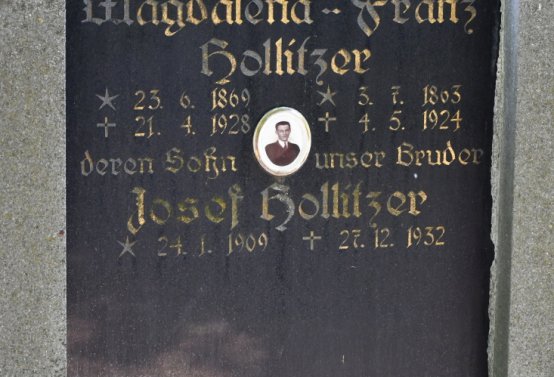 Magdalena - Franz
Hollitzer
* 23. 6. 1869 * 3. 7. 1863
+ 21. 4. 1928 + 4. 5. 1924
deren Sohn unser Bruder
Josef Hollitzer
* 24. 1. 1909 + 27. 12. 1932